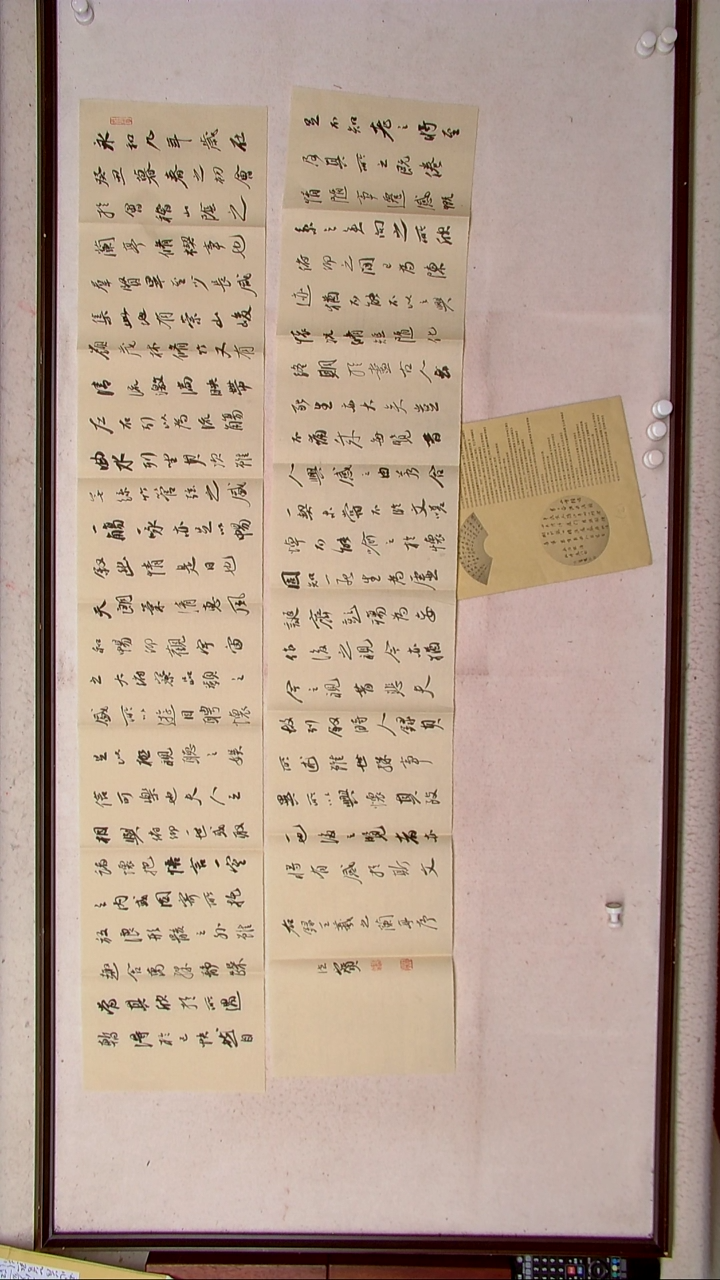 永和九年歲在
癸丑暮春之初會
於會稽山陰之
蘭亭脩禊事也
羣賢畢至少長咸
集此地有崇山峻
領茂林脩竹又有
清流激湍映帶
左右引以為流觴
曲水列坐其次雖
無絲竹管弦之盛
一觴一詠亦足以暢
敘幽情是日也
天朗氣清惠風
和暢仰觀宇宙
之大俯察品類之
盛所以遊目騁懷
足以極視聽之娛
信可樂也夫人之
相與俯仰一世或取
諸懷抱悟言一室
之內或因寄所托
放浪形骸之外雖
趣舍萬殊靜躁
當其欣於所遇
暫得於己怏然自
足不知老之將至
及其所之既倦
情隨事遷感慨
係之矣向之所欣
俯仰之間已為陳
迹猶不能不以之興
懷況脩短隨化
終期於盡古人云
死生亦大矣豈
不痛哉每覽昔
人興感之由若合
一契未嘗不臨文嗟
悼不能喻之於懷
固知一死生為虛
誕齊彭殤為妄
作後之視今亦猶
今之視昔悲夫
故列敘時人錄其
所述雖世殊事
異所以興懷其致
一也後之覽者亦
將有感於斯文
右錄王羲之蘭亭序